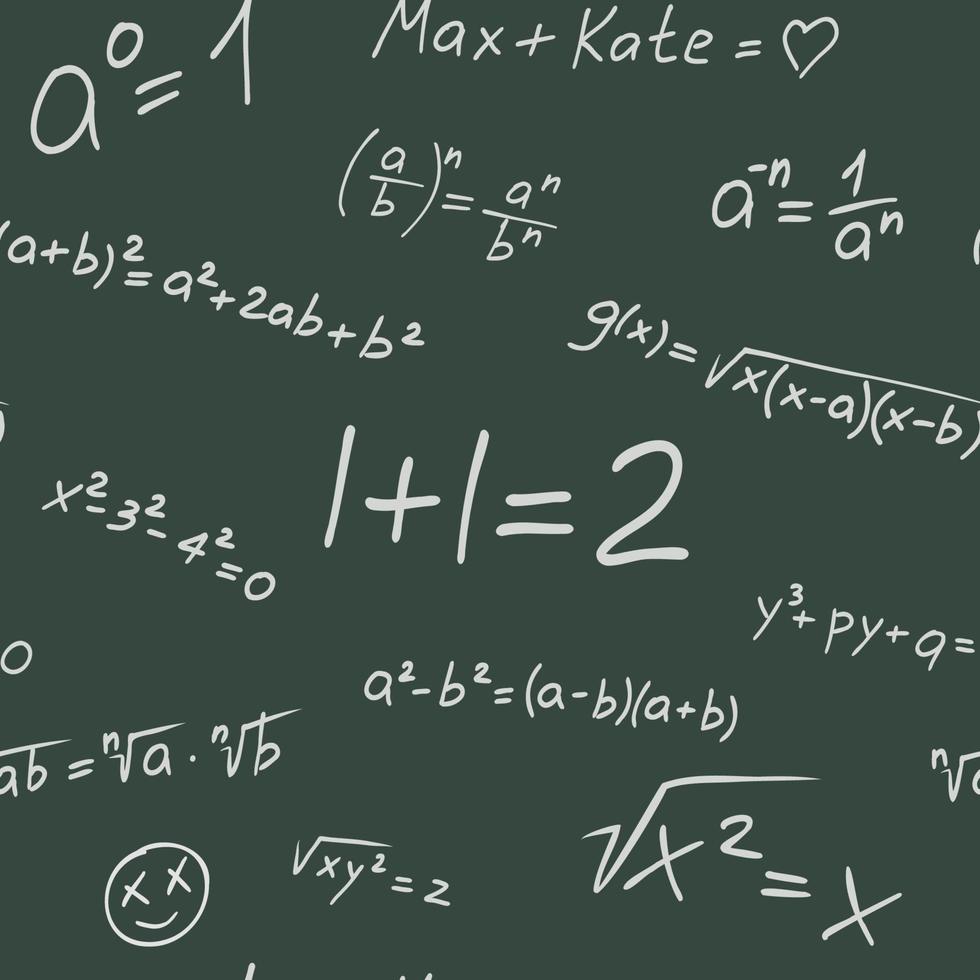 a⁰=1
Max+Kate=♡
(a/b)ⁿ=aⁿ/bⁿ
a⁻ⁿ=1/aⁿ
(a+b)²=a²+2ab+b²
g(x)=√x(x-a)(x-b)
1+1=2
x²-3²-4²=0
y³+py+q=
0
a²-b²=(a-b)(a+b)
ab=ⁿ√a·ⁿ√b
ⁿ√a
√xy²=z
√x²=x